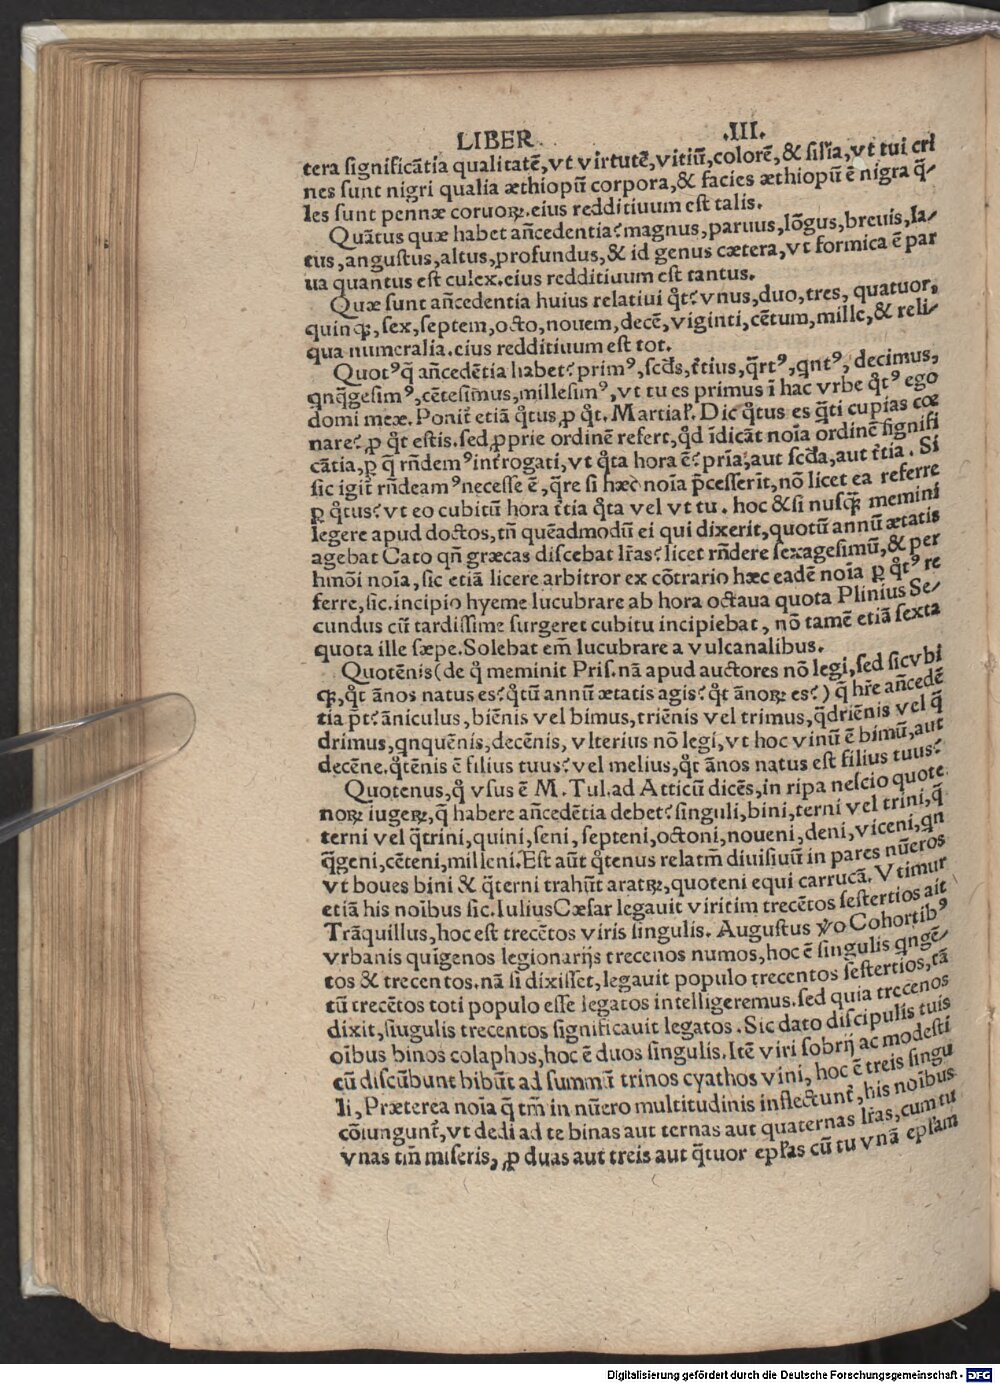 LIBER .III.
tera significãtia qualitatẽ, vt virtutẽ, vitiũ, colorẽ, & sil̃ia, vt tui cri
nes sunt nigri qualia æthiopũ corpora, & facies æthiopũ ẽ nigra q̃⸗
les sunt pennæ coruoꝝ. eius redditiuum est talis.
Quãtus quæ habet añcedentia? magnus, paruus, lõgus, breuis, la⸗
tus, angustus, altus, profundus, & id genus cætera, vt formica ẽ par
ua quantus est culex. eius redditiuum est tantus.
Quæ sunt añcedentia huius relatiui qͦt? vnus, duo, tres, quatuor,
quinqꝫ, sex, septem, octo, nouem, decẽ, viginti, cẽtum, mille, & reli⸗
qua numeralia. eius redditiuum est tot.
Quotꝰ q̃ añcedẽtia habet? primꝰ, scd̃s, t̃tius, q̃rtꝰ, qntꝰ, decimus,
qnq̃gesimꝰ, cẽtesimus, millesimꝰ, vt tu es primus ĩ hac vrbe qͦtꝰ ego
domi meæ. Ponit̃ etiã qͦtus, ꝓ qͦt. Martial̃. Dic qͦtus es q̃ti cupias cœ
nare? ꝓ qͦt estis. sed ꝓprie ordinẽ refert, qͦd ĩdicãt noĩa ordinẽ signifi
cãtia, ꝑ q̃ rñdemꝰ int̃rogati, vt qͦta hora ẽ? pr̃ia, aut scd̃a, aut t̃tia. Si
sic igit̃ rñdeamꝰ necesse ẽ, q̃re si hæc noĩa p̃cesserĩt, nõ licet ea referre
ꝑ qͦtus? vt eo cubitũ hora t̃tia qͦta vel vt tu. hoc & si nusqꝫ̃ memini
legere apud doctos, tñ quẽadmodũ ei qui dixerit, quotũ annũ ætatis
agebat Cato qñ græcas discebat lr̃as? licet rñdere sexagesimũ, & per
hmõi noĩa, sic etiã licere arbitror ex cõtrario hæc eadẽ noĩa ꝑ qͦtꝰ re
ferre, sic. incipio hyeme lucubrare ab hora octaua quota Plinius Se⸗
cundus cũ tardissime surgeret cubitu incipiebat, nõ tamẽ etiã sexta
quota ille sæpe. Solebat em̃ lucubrare a vulcanalibus.
Quotẽnis (de qͦ meminit Pris. nã apud auctores nõ legi, sed sicvbi
qꝫ, qͦt ãnos natus es? qͦtũ annũ ætatis agis? qͦt ãnoꝝ es?) q̃ hr̃e añcedẽ
tia p̃t? ãniculus, biẽnis vel bimus, triẽnis vel trimus, q̃driẽnis vel q̃
drimus, qnquẽnis, decẽnis, vlterius nõ legi, vt hoc vinũ ẽ bimũ, aut
decẽne. qͦtẽnis ẽ filius tuus? vel melius, qͦt ãnos natus est filius tuus?
Quotenus, qͦ vsus ẽ M. Tul. ad Atticũ dicẽs, in ripa nescio quote
noꝝ iugeꝝ, q̃ habere añcedẽtia debet? singuli, bini, terni vel trini, q̃
terni vel q̃trini, quini, seni, septeni, octoni, noueni, deni, viceni, qn
q̃geni, cẽteni, milleni. Est aũt qͦtenus relatm̃ diuisiuũ in pares nũeros
vt boues bini & q̃terni trahũt aratꝝ, quoteni equi carrucã. Vtimur
etiã his noĩbus sic. Iulius Cæsar legauit viritim trecẽtos sestertios ait
Trãquillus, hoc est trecẽtos viris singulis. Augustus ṽo Cohortibꝰ
vrbanis quĩgenos legionarijs trecenos numos, hoc ẽ singulis qngẽ⸗
tos & trecentos. nã si dixisset, legauit populo trecentos sestertios, tã
tũ trecẽtos toti populo esse legatos intelligeremus. sed quia trecenos
dixit, siugulis trecentos significauit legatos. Sic dato discipulis tuis
oĩbus binos colaphos, hoc ẽ duos singulis. Itẽ viri sobrij ac modesti
cũ discũbunt bibũt ad summũ trinos cyathos vini, hoc ẽ treis singu
li, Præterea noĩa q̃ tm̃ in nũero multitudinis inflectunt̃, his noĩbus
cõiungunt̃, vt dedi ad te binas aut ternas aut quaternas lr̃as, cum tu
vnas tm̃ miseris, ꝓ duas aut treis aut q̃tuor epl̃as cũ tu vnã epl̃am
Digitalisierung gefördert durch die Deutsche Forschungsgemeinschaft - DFG